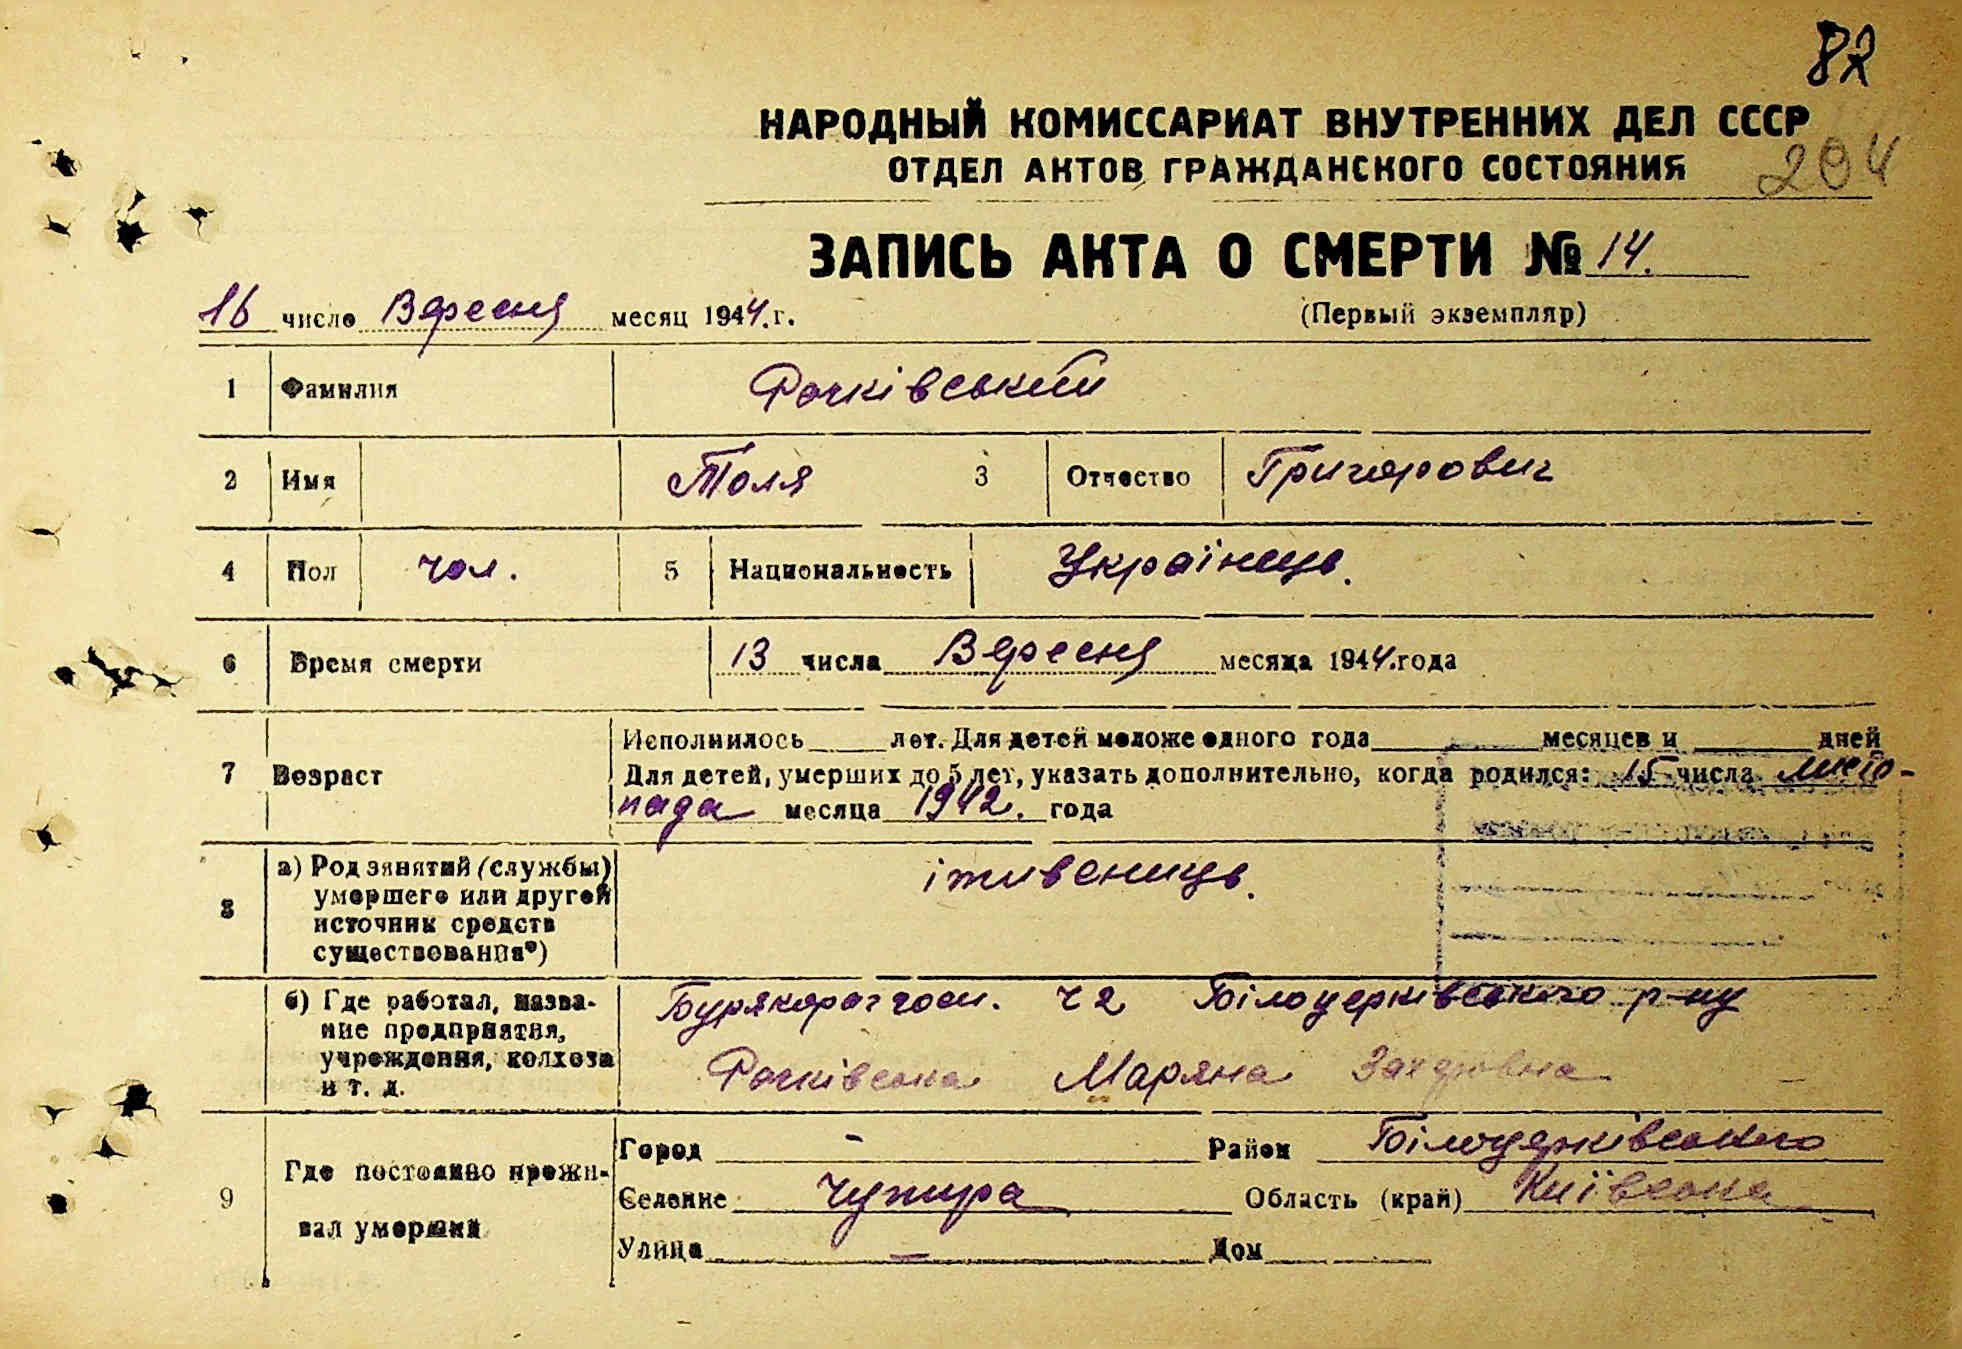 82
НАРОДНЫЙ КОМИССАРИАТ ВНУТРЕННИХ ДЕЛ СССР
ОТДЕЛ АКТОВ ГРАЖДАНСКОГО СОСТОЯНИЯ
204
ЗАПИСЬ АКТА О СМЕРТИ № 14.
16 число Вересня месяц 1944. г.
(Первый экземпляр)
1 Фамилия Рачківський
2 Имя Толя 3 Отчество Григорович
4 Пол чол. 5 Национальность Українець.
6 Время смерти 13 числа Вересня месяца 1944. года
Исполнилось лет. Для детей моложе одного года месяцев и дней
7 Возраст Для детей, умерших до 5 лет, указать дополнительно, когда родился: 15 числа листо-
пада месяца 1942. года
8 а) Род занятий (службы) умершего или другой источник средств существования*) іживенець.
б) Где работал, название предприятия, учреждения, колхоза и т. д. Бурякорадгосп. ч 2 Білоцерківського р-ну
Рачківська Маряна
9 Где постоянно проживал умерший
Город - Район Білоцерківського
Селение Область (край) Київська
Улица — Дом